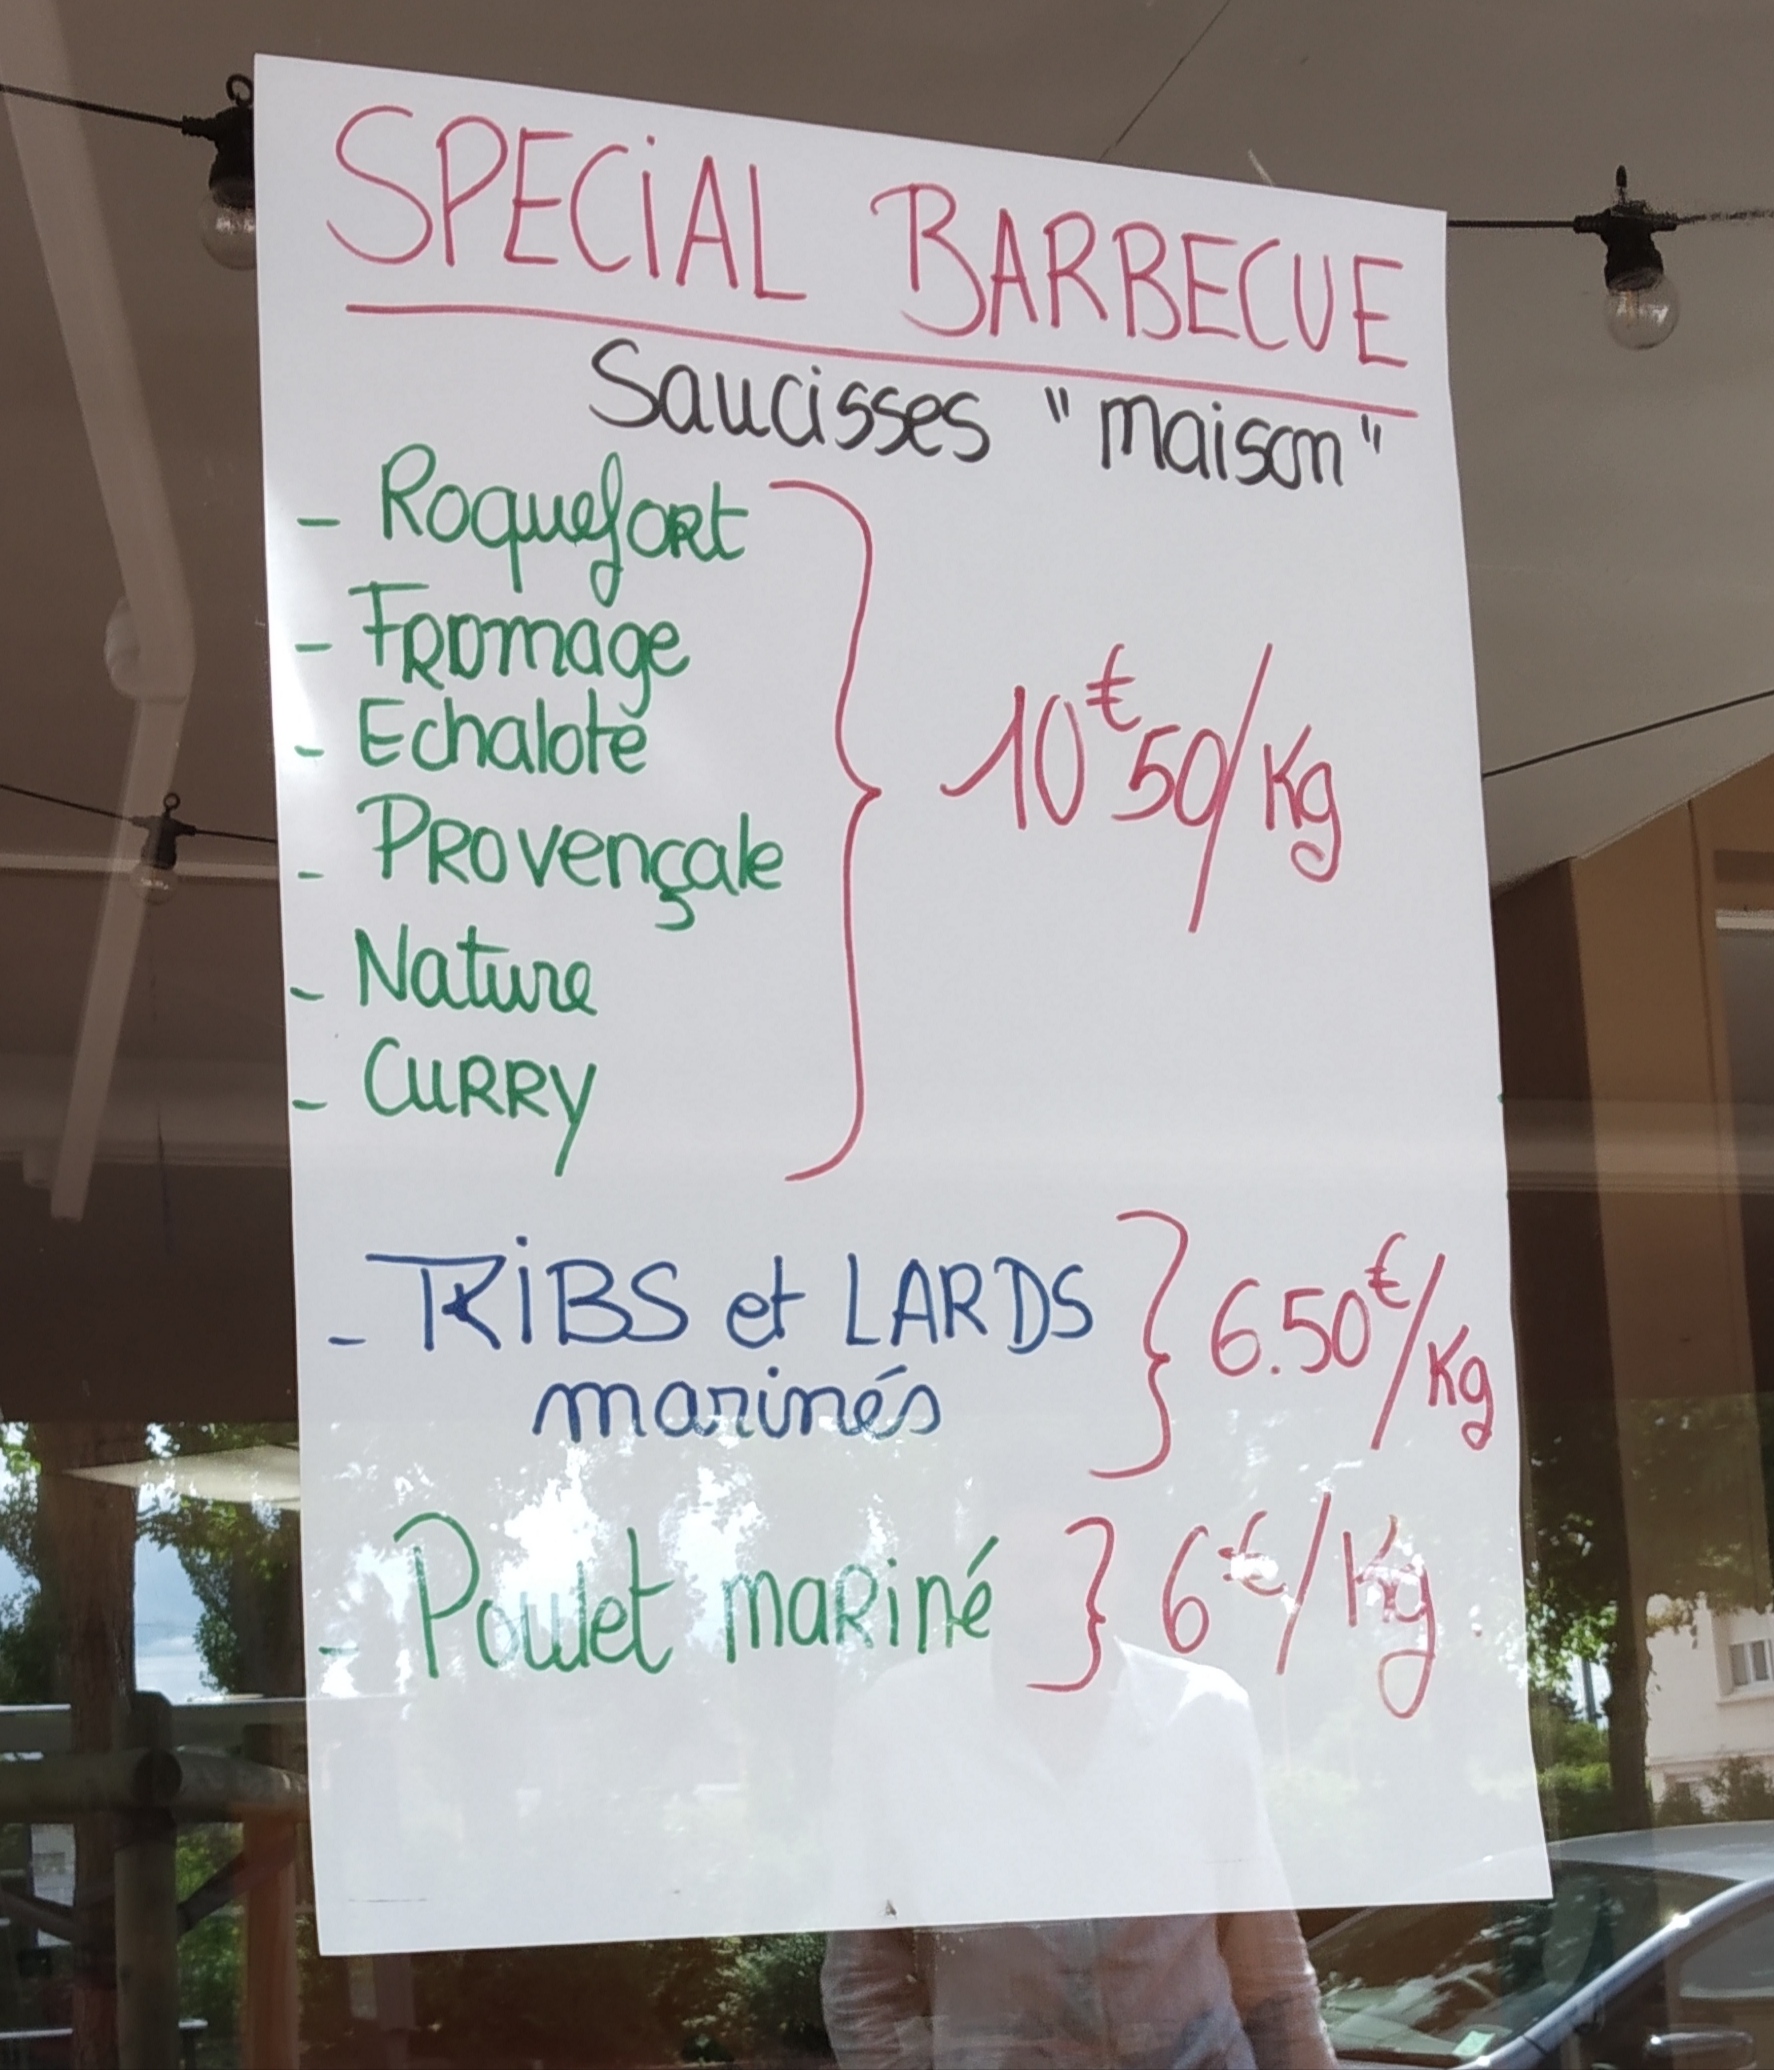 SPECIAL BARBECUE
Saucisses "maison"
- Roquefort
- Fromage
- Echalote
- Provençale
- Nature
- Curry
10€50/Kg
- RIBS et LARDS
marinés
6.50€/Kg
- Poulet mariné
6€/Kg.